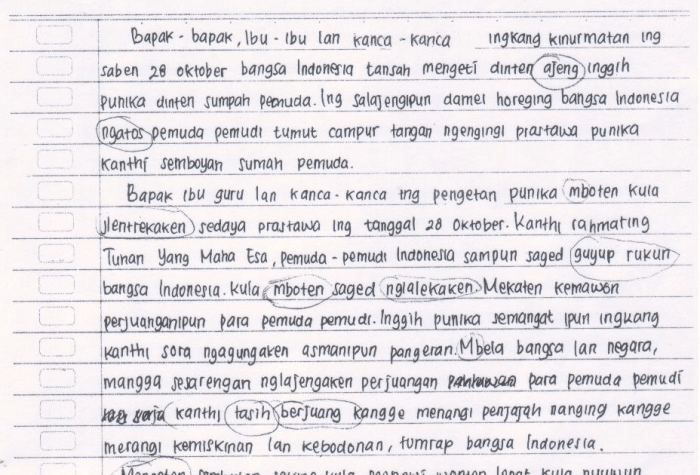 Bapak - bapak, Ibu - Ibu lan kanca - kanca ingkang kinurmatan ing
saben 28 oktober bangsa Indonesia tansah mengeti dinten ajeng inggih
punika dinten sumpah pemuda. Ing salajengipun damel horeging bangsa Indonesia
ngatos pemuda pemudi tumut campur tangan ngengingi prastawa punika
kanthi semboyan sumah pemuda.
Bapak ibu guru lan kanca - kanca ing pengetan punika mboten kula
jlentrekaken sedaya prastawa ing tanggal 28 oktober. Kanthi rahmating
Tuhan Yang Maha Esa, pemuda - pemudi Indonesia sampun saged guyup rukun
bangsa Indonesia. Kula mboten saged nglalekaken Mekaten kemawon
perjuanganipun para pemuda pemudi. Inggih punika semangat ipun ingkang
kanthi sora ngagungaken asmanipun pangeran. Mbela bangsa lan negara,
mangga sesarengan nglajengaken perjuangan para pemuda pemudi
kanthi tasih berjuang kangge menangi penjajah nanging kangge
merangi kemiskinan lan kebodonan, tumrap bangsa Indonesia.